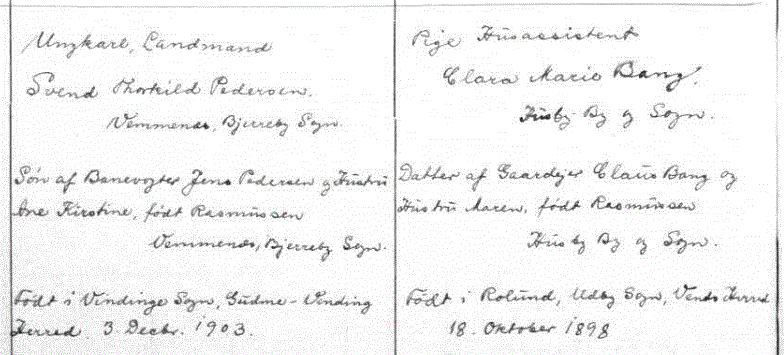 Ungkarl, Landmand
Svend Thorkild Pedersen.
Vemmenæs, Bjerreby Sogn.
Søn af Banevogter Jens Pedersen og Hustru
Ane Kirstine, født Rasmussen
Vemmenæs, Bjerreby Sogn.
Født i Vindinge Sogn, Gudme-Vinding
Herred. 3. Decbr. 1903.
Pige Husassistent
Clara Marie Bang,
Husby By og Sogn.
Datter af Gaardejer Claus Bang og
Hustru Maren, født Rasmussen
Husby By og Sogn.
Født i Rolund, Udby Sogn, Vends Herred
18. Oktober 1898